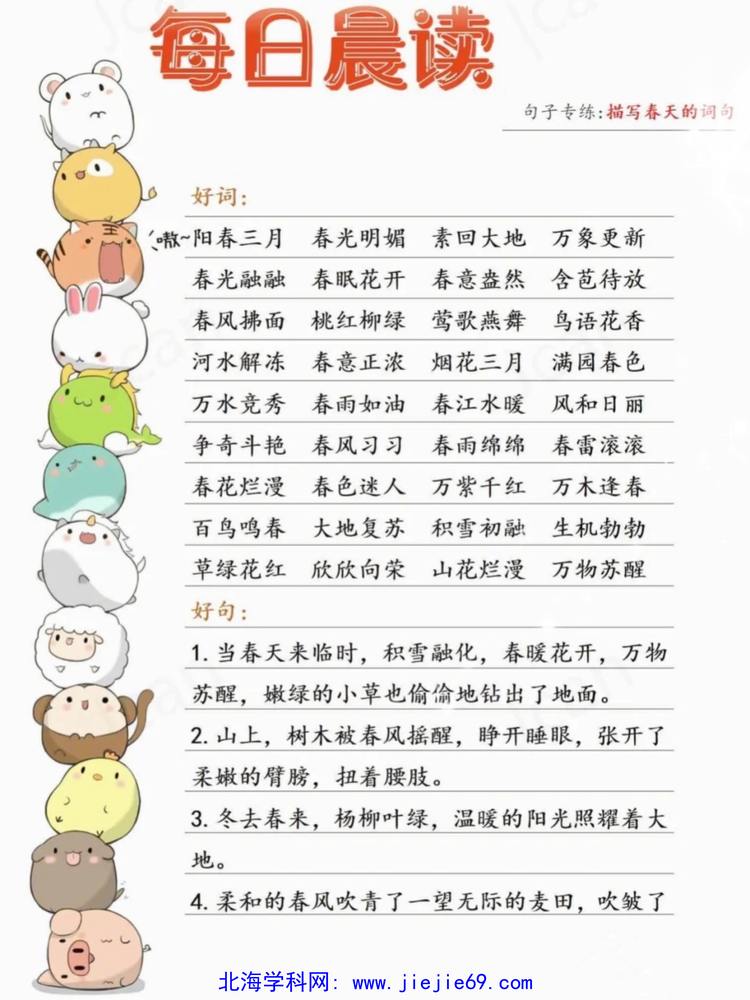 每日晨读
句子专练:描写春天的词句
好词：
嗷~
阳春三月 春光明媚 素回大地 万象更新
春光融融 春眠花开 春意盎然 含苞待放
春风拂面 桃红柳绿 莺歌燕舞 鸟语花香
河水解冻 春意正浓 烟花三月 满园春色
万水竞秀 春雨如油 春江水暖 风和日丽
争奇斗艳 春风习习 春雨绵绵 春雷滚滚
春花烂漫 春色迷人 万紫千红 万木逢春
百鸟鸣春 大地复苏 积雪初融 生机勃勃
草绿花红 欣欣向荣 山花烂漫 万物苏醒
好句：
1. 当春天来临时，积雪融化，春暖花开，万物
苏醒，嫩绿的小草也偷偷地钻出了地面。
2. 山上，树木被春风摇醒，睁开睡眼，张开了
柔嫩的臂膀，扭着腰肢。
3. 冬去春来，杨柳叶绿，温暖的阳光照耀着大
地。
4. 柔和的春风吹青了一望无际的麦田，吹皱了
北海学科网：www.jiejie69.com